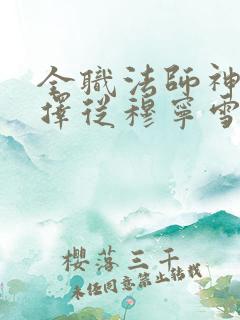 全職法師神
擇從穆寧雪
櫻落三千
未经同意禁止转载